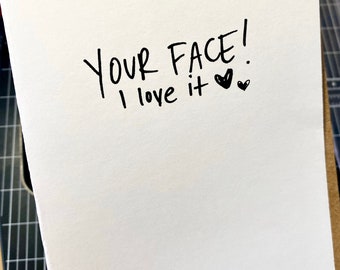 YOUR FACE!
I love it